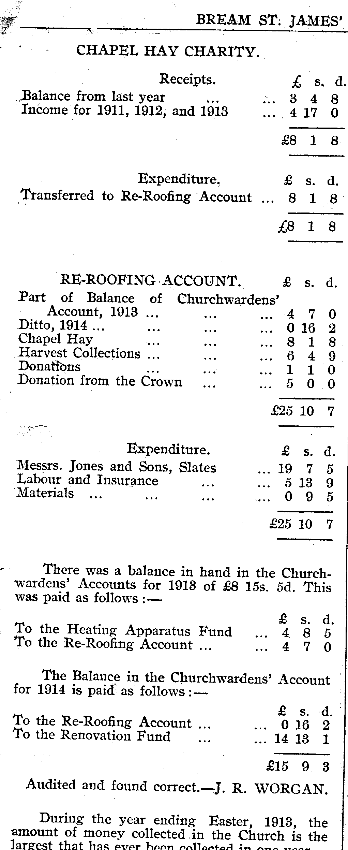 BREAM ST. JAMES'
CHAPEL HAY CHARITY.
Receipts. £ s. d.
Balance from last year ... ... 3 4 8
Income for 1911, 1912, and 1913 ... 4 17 0
£8 1 8
Expenditure. £ s. d.
Transferred to Re-Roofing Account ... 8 1 8
£8 1 8
RE-ROOFING ACCOUNT. £ s. d.
Part of Balance of Churchwardens'
Account, 1913 ... ... ... 4 7 0
Ditto, 1914 ... ... ... ... 0 16 2
Chapel Hay ... ... ... 8 1 8
Harvest Collections ... ... ... 6 4 9
Donations ... ... ... 1 1 0
Donation from the Crown ... ... 5 0 0
£25 10 7
Expenditure. £ s. d.
Messrs. Jones and Sons, Slates ... 19 7 5
Labour and Insurance ... ... 5 13 9
Materials ... ... ... ... 0 9 5
£25 10 7
There was a balance in hand in the Church-
wardens' Accounts for 1913 of £8 15s. 5d. This
was paid as follows :—
£ s. d.
To the Heating Apparatus Fund ... 4 8 5
To the Re-Roofing Account ... ... 4 7 0
The Balance in the Churchwardens' Account
for 1914 is paid as follows :—
£ s. d.
To the Re-Roofing Account ... ... 0 16 2
To the Renovation Fund ... ... 14 13 1
£15 9 3
Audited and found correct.—J. R. WORGAN.
During the year ending Easter, 1913, the
amount of money collected in the Church is the
largest that has ever been collected in one year